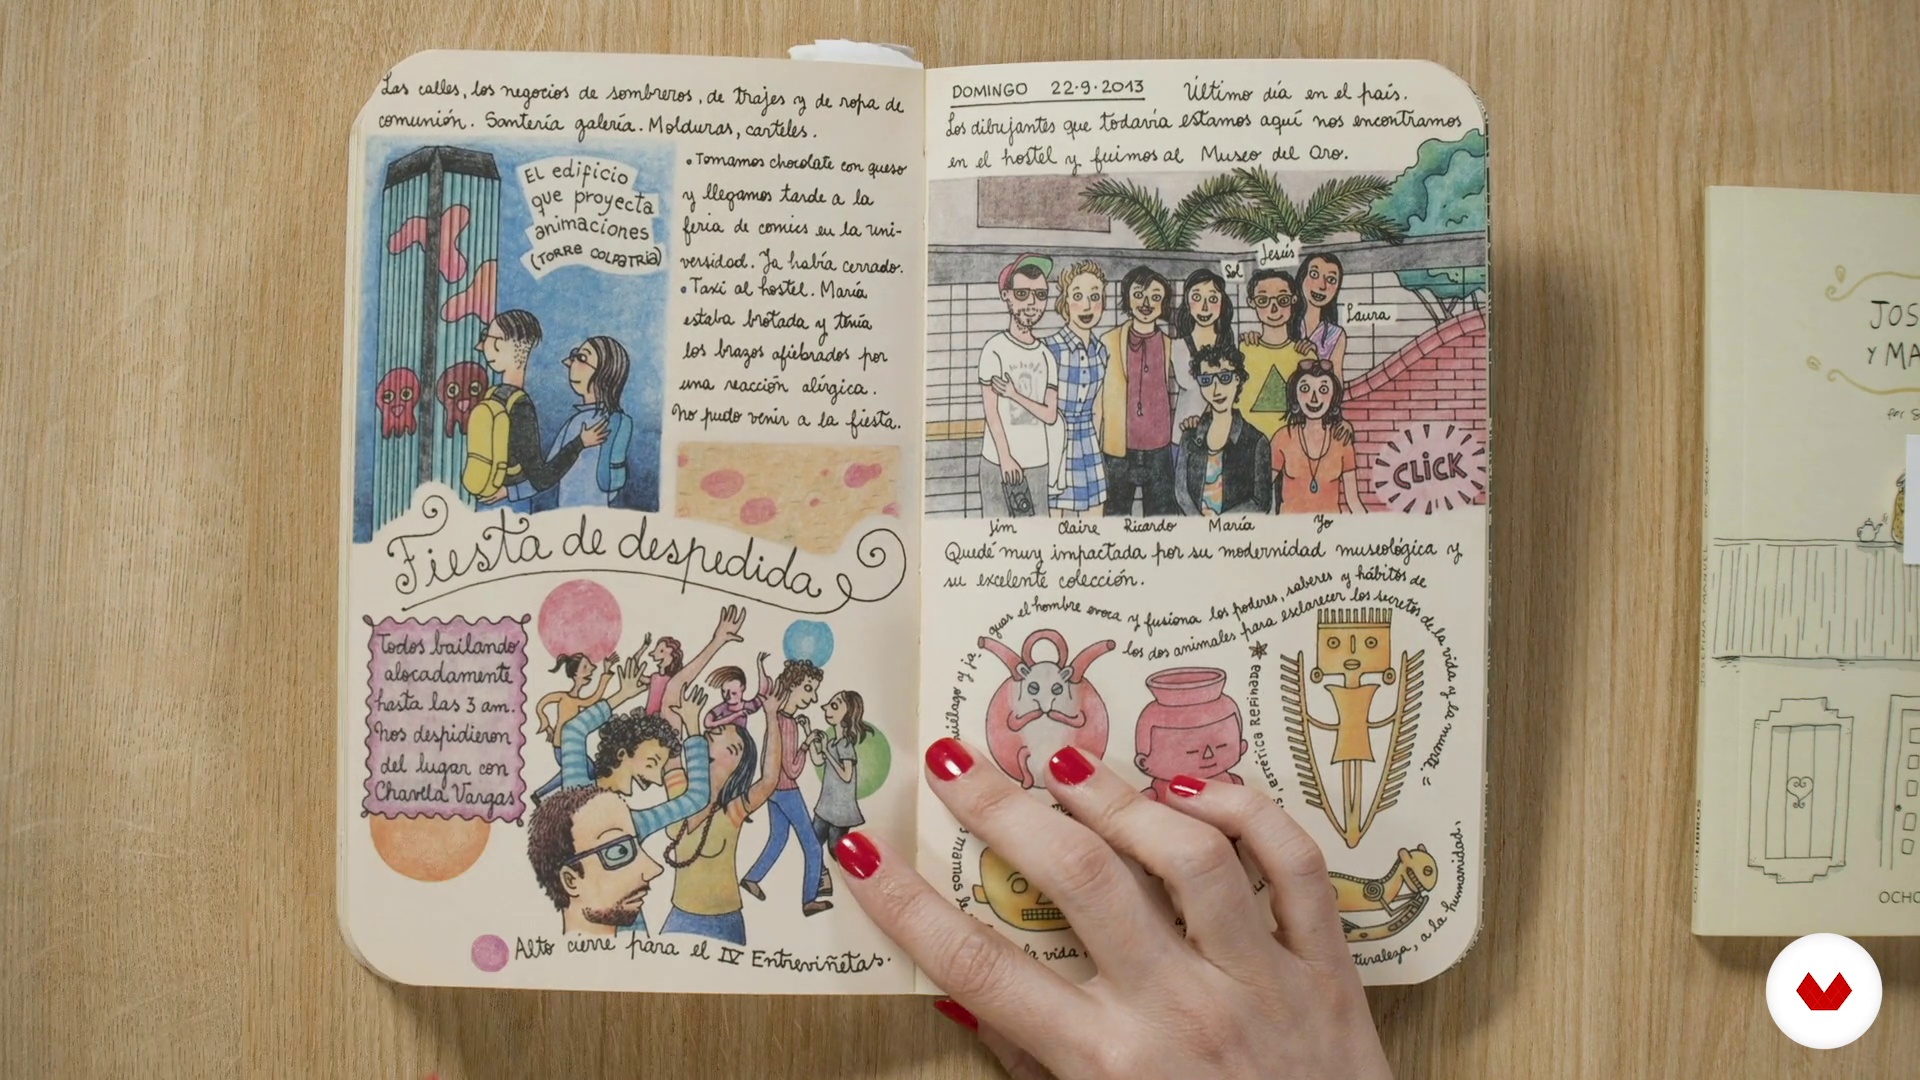 Las calles, los negocios de sombreros, de trajes y de ropa de
comunión. Santería galería. Molduras, carteles.
El edificio
que proyecta
animaciones
(TORRE COLPATRIA)
• Tomamos chocolate con queso
y llegamos tarde a la
feria de comics en la uni-
versidad. Ya había cerrado.
• Taxi al hostel. María
estaba brotada y tenía
los brazos afiebrados por
una reacción alérgica.
No pudo venir a la fiesta.
Fiesta de despedida
Todos bailando
alocadamente
hasta las 3 am.
Nos despidieron
del lugar con
Chavela Vargas
Alto cierre para el IV Entreviñetas.
DOMINGO 22.9.2013 Último día en el país.
Los dibujantes que todavía estamos aquí nos encontramos
en el hostel y fuimos al Museo del Oro.
Sol
Jesús
Laura
CLICK
Jim Claire Ricardo María Yo
Quedé muy impactada por su modernidad museológica y
su excelente colección.
guar el hombre evoca y fusiona los poderes, saberes y hábitos de
los dos animales para esclarecer los secretos de la vida y la muerte. =
estética REFINADA
la vida,
a la humanidad,
JOS
Y MA
por S
OCHO
OCHOLIBROS